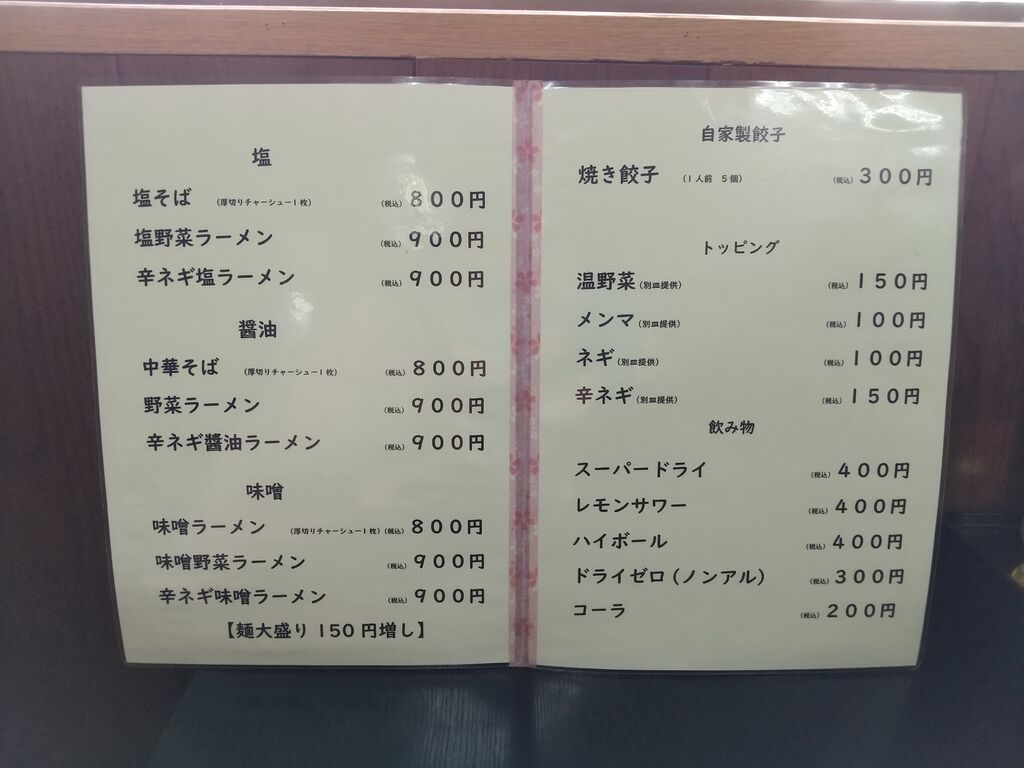 塩
塩そば (厚切りチャーシュー1枚) (税込) 800円
塩野菜ラーメン (税込) 900円
辛ネギ塩ラーメン (税込) 900円
醤油
中華そば (厚切りチャーシュー1枚) (税込) 800円
野菜ラーメン (税込) 900円
辛ネギ醤油ラーメン (税込) 900円
味噌
味噌ラーメン (厚切りチャーシュー1枚) (税込) 800円
味噌野菜ラーメン (税込) 900円
辛ネギ味噌ラーメン (税込) 900円
【麺大盛り 150円増し】
自家製餃子
焼き餃子 (1人前 5個) (税込) 300円
トッピング
温野菜 (別皿提供) (税込) 150円
メンマ (別皿提供) (税込) 100円
ネギ (別皿提供) (税込) 100円
辛ネギ (別皿提供) (税込) 150円
飲み物
スーパードライ (税込) 400円
レモンサワー (税込) 400円
ハイボール (税込) 400円
ドライゼロ (ノンアル) (税込) 300円
コーラ (税込) 200円